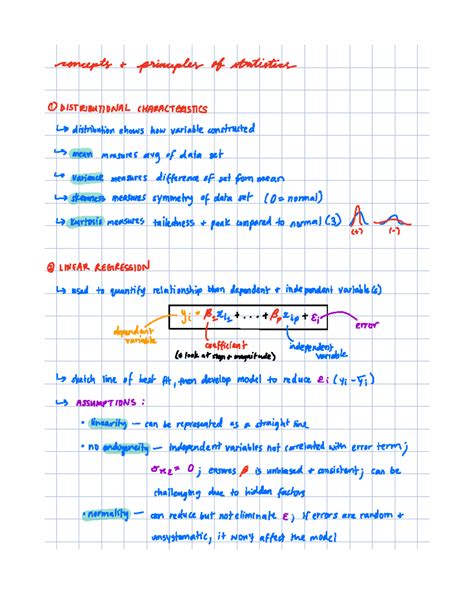 concepts + principles of statistics
① DISTRIBUTIONAL CHARACTERISTICS
↳ distribution shows how variable constructed
↳ mean measures avg of data set
↳ variance measures difference of set from mean
↳ skewness measures symmetry of data set (0 = normal)
↳ kurtosis measures tailedness + peak compared to normal (3)
(+) (-)
② LINEAR REGRESSION
↳ used to quantify relationship btwn dependent + independent variable(s)
yᵢ = β₁xᵢ₁ + ... + βₚxᵢₚ + εᵢ
dependent variable
coefficient
(→ look at sign + magnitude)
independent variable
error
↳ sketch line of best fit, then develop model to reduce εᵢ (yᵢ - ȳᵢ)
↳ ASSUMPTIONS :
• linearity — can be represented as a straight line
• no endogeneity — independent variables not correlated with error term;
σₓε = 0 ; ensures β is unbiased + consistent; can be
challenging due to hidden factors
• normality — can reduce but not eliminate ε; if errors are random +
unsystematic, it won't affect the model